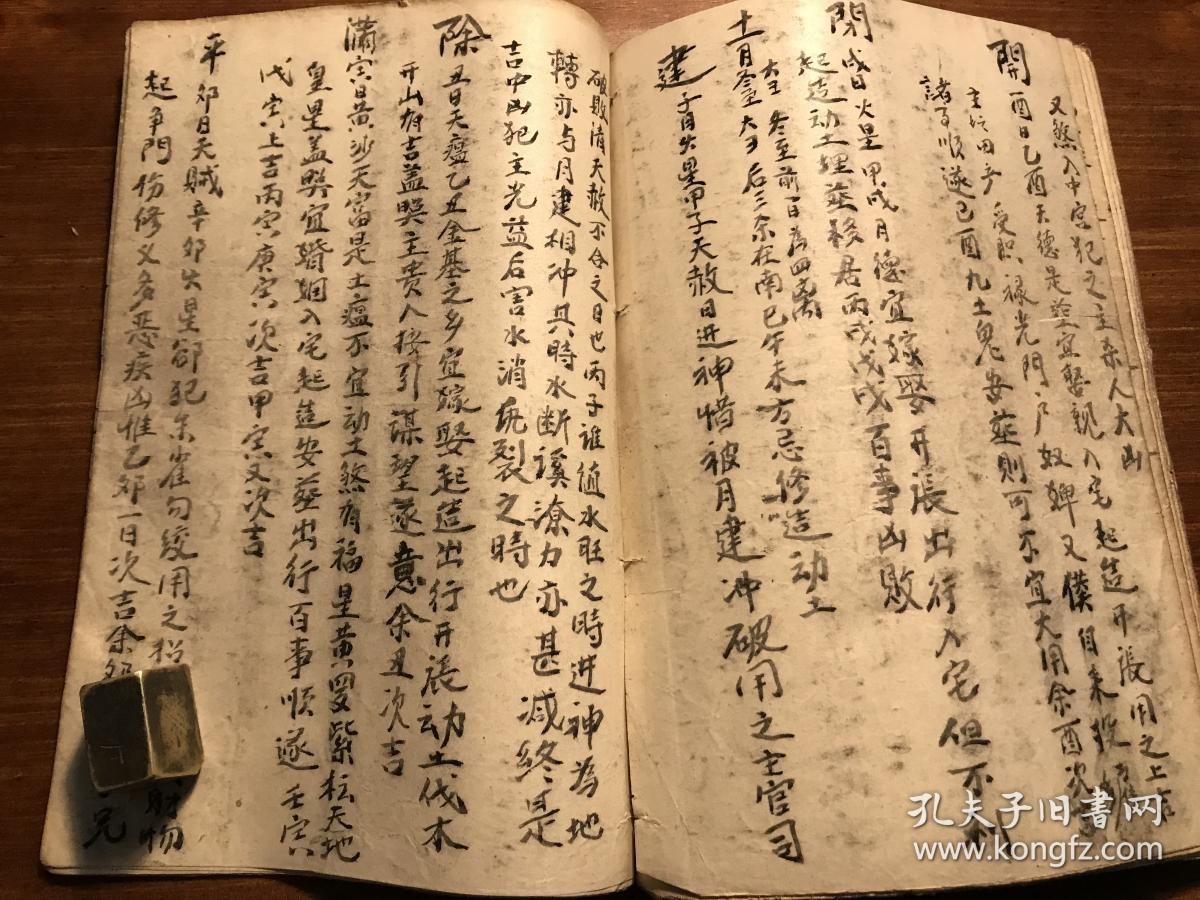 又煞入中宫犯之主杀人大凶
開 酉日乙酉天德是登宜娶親入宅起造开張用之上吉
主坟田产受职禄光門户奴婢又僕自来投 余酉次吉
諸事順遂己酉九土鬼安葬則可不宜大用
閉 戌日火星甲戌月德宜嫁娶开張出行入宅但不利
起造动土埋葬移居丙戌戊戌百事凶敗
大玉冬至前一日為四离
十一月冬至大子后三杀在南巳午未方忌修造动土
建 子日火星甲子天赦日进神惜被月建冲破用之主官司
破敗情天赦不合之日也丙子谁值水旺之時进神為地
轉亦与月建相冲其時水断溪潦力亦甚减終是
吉中凶犯主光益后害水消瓦裂之時也
除 丑日天瘟乙丑金基之乡宜嫁娶起造出行开張动土伐木
开山有吉盖照主贵人接引謀望遂意余丑次吉
满 寅日黄沙天富是土瘟不宜动土煞有福星黄罗紫枟天地
皇星盖照宜婚姻入宅起造安葬出行百事順遂壬寅
戊寅上吉丙寅庚寅次吉甲寅又次吉
平 卯日天贼辛卯火星卻犯朱雀勾绞用之招 財物
起争門伤修义多恶疾凶惟乙卯一日次吉余卯 兄
孔夫子旧书网
www.kongfz.com